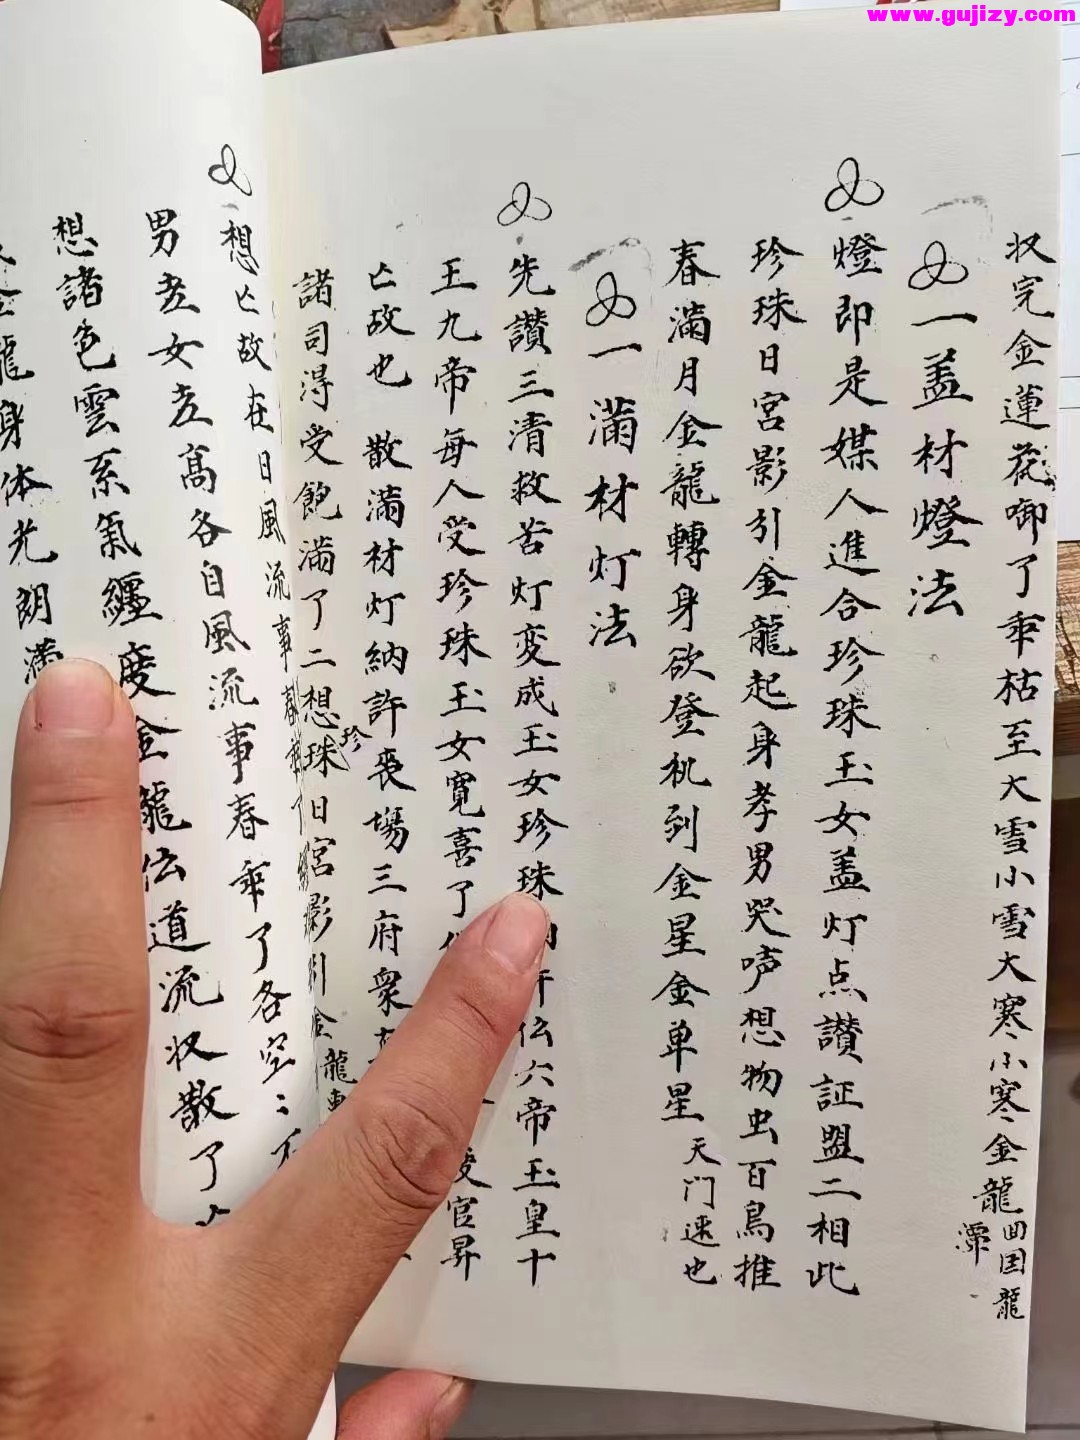 www.gujizy.com
状完金蓮花啣了年枯至大雪小雪大寒小寒金龍田国龍潭
一盖材燈法
燈即是媒人進合珍珠玉女盖灯点讃証盟二相此
珍珠日宮影引金龍起身孝男哭声想物虫百鳥推
春滿月金龍轉身欲登机到金星金单星天门速也
一滿材灯法
先讃三清救苦灯变成玉女珍珠仫六帝玉皇十
王九帝每人受珍珠玉女寛喜了受官昇
亡故也 散滿材灯納許喪場三府衆
諸司淂受飽滿了二想珍珠日宮影引金龍
想亡故在日風流事春年了
男左女左高各自風流事春年了各空
想諸色雲系氣纏度金龍仫道流状散了
龍身体光朗滿